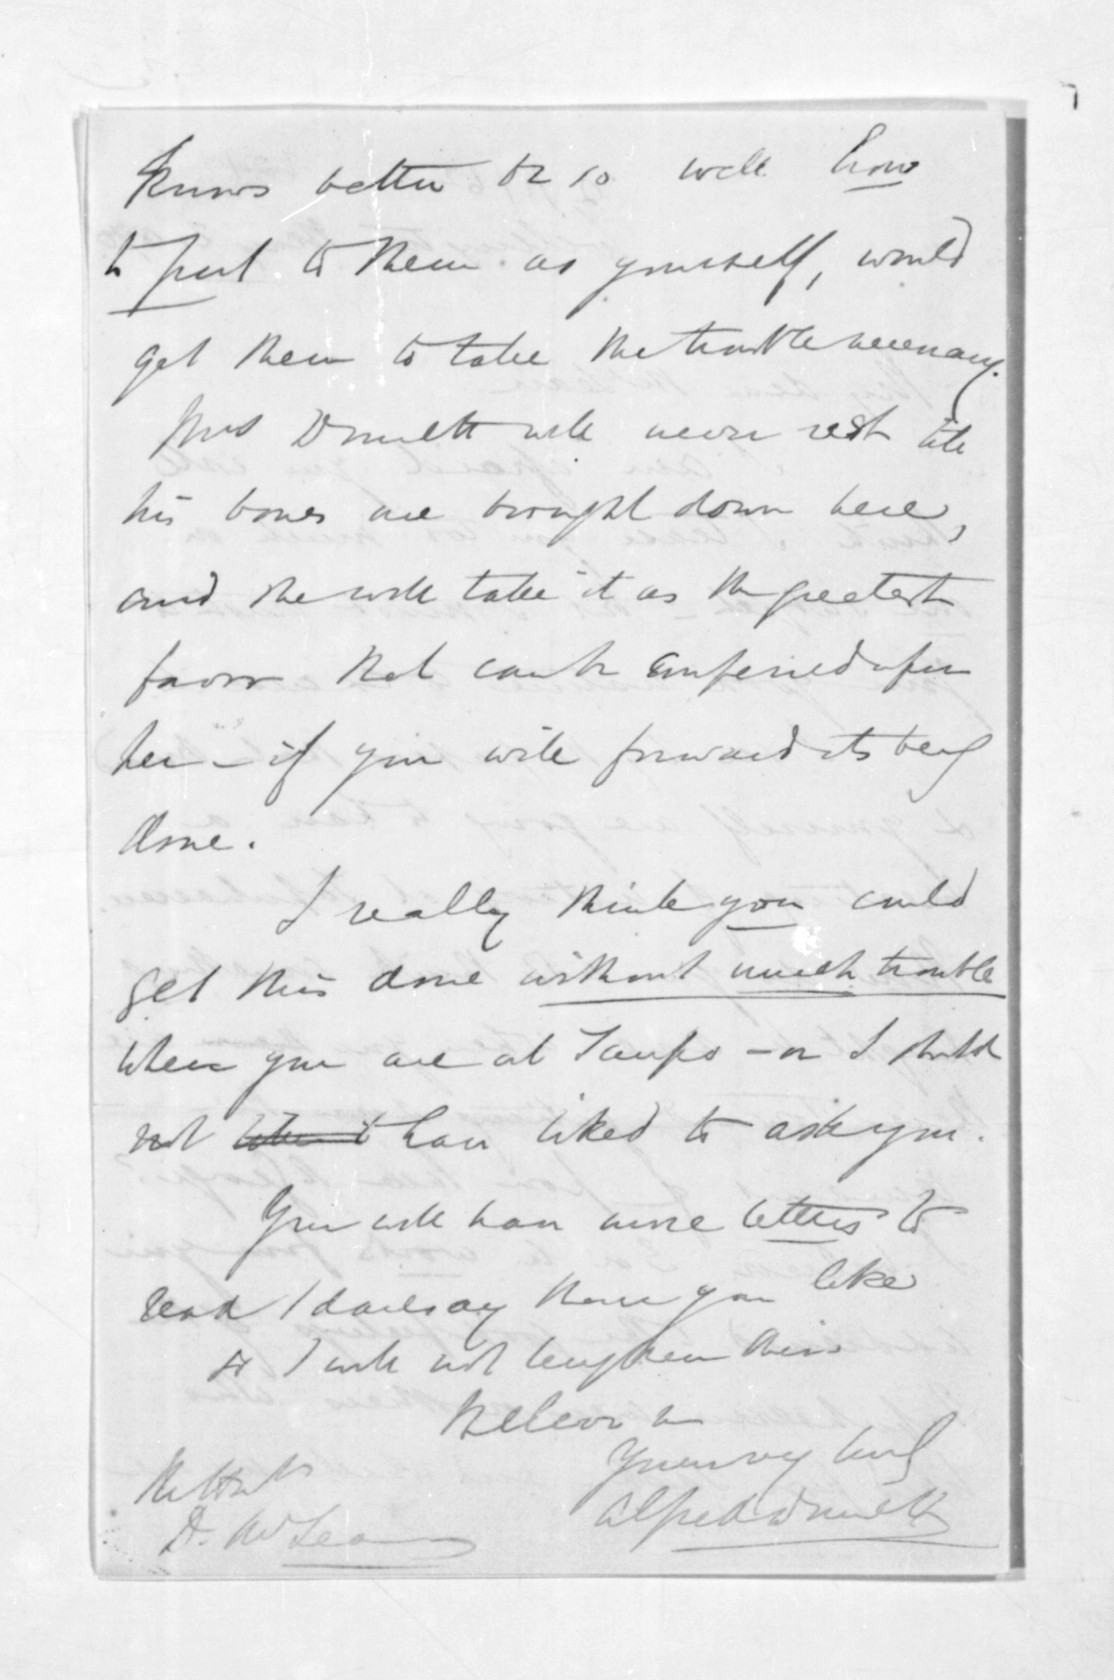 knows better or so well how
to put to them as yourself, would
get them to take the trouble necessary.
Mrs Domett will never rest till
his bones are brought down here,
and she will take it as the greatest
favor that can be conferred upon
her — if you will forward its being
done.
I really think you could
get this done without much trouble
when you are at Taupo — or I should
not have liked to ask you.
You will have more letters to
read I daresay than you like
so I will not lengthen this
Believe me
Yours very truly
Alfred Domett
D. McLean